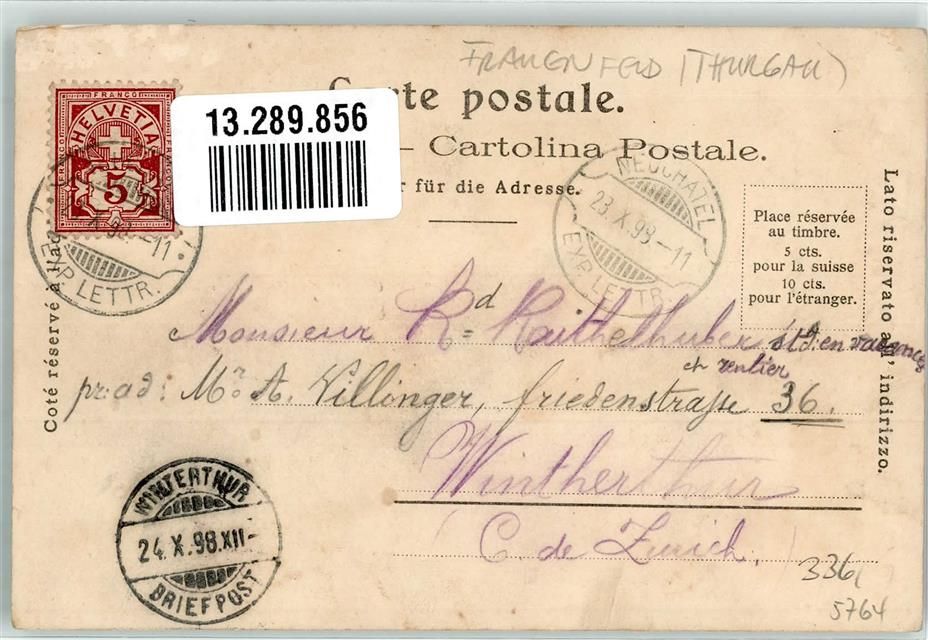 FRAUENFELD (THURGAU)
Carte postale.
– Cartolina Postale.
für die Adresse.
13.289.856
FRANCO
HELVETIA
5
98.-11
EXP. LETTR.
NEUCHATEL
23.X.98-11
EXP. LETTR.
Place réservée
au timbre.
5 cts.
pour la suisse
10 cts.
pour l'étranger.
Coté réservé à l'ad
Lato riservato all' indirizzo.
Monsieur Rd Raithelhuber st. d. en vacances
et rentier
pr: ad: Mr. A. Villinger, friedenstrasse 36.
Wintherthur
C. de Zurich.
WINTERTHUR
24.X.98.XII-
BRIEFPOST
336
5764